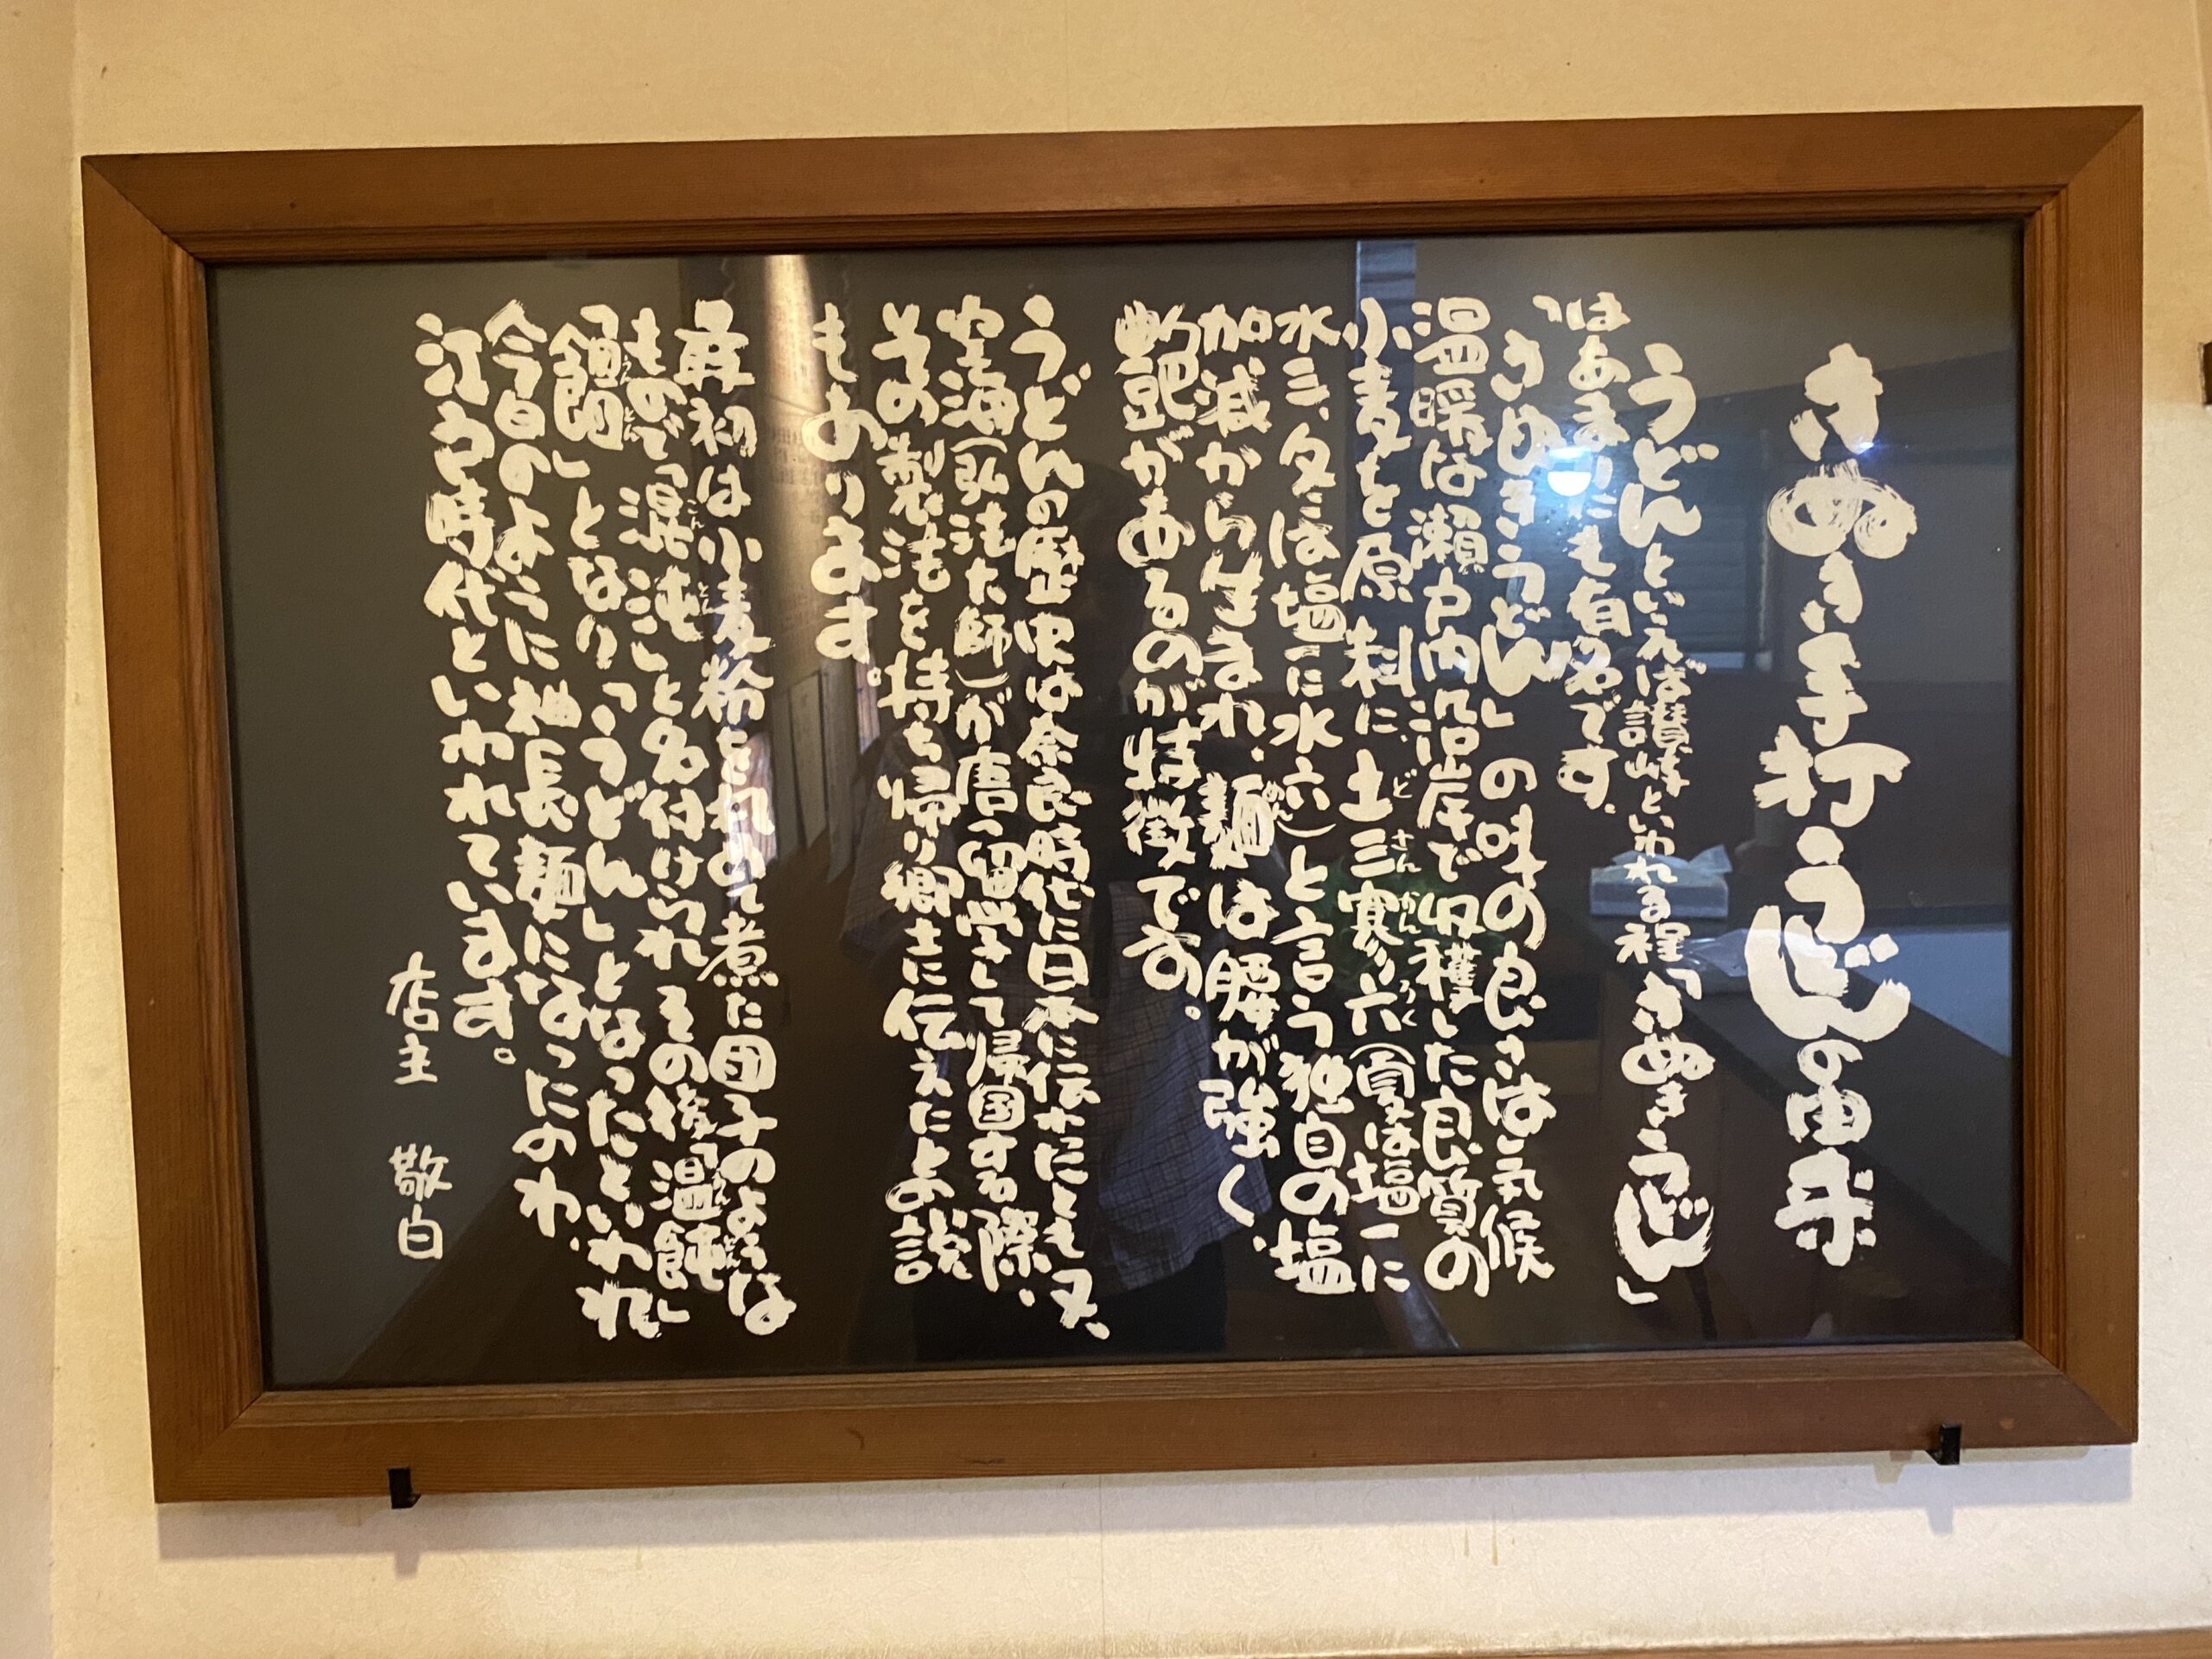 さぬき手打うどんの由来
うどんといえば讃岐といわれる程「さぬきうどん」
はあまりにも有名です。
「さぬきうどん」の味の良さは気候
温暖な瀬戸内沿岸で収穫した良質の
小麦を原料に、土三寒六(夏は塩一に
水三、冬は塩一に水六)と言う独自の塩
加減から生まれ、麺は腰が強く、
艶があるのが特徴です。
うどんの歴史は奈良時代に日本に伝わったとも又、
空海(弘法大師)が唐へ留学して帰国する際、
その製法を持ち帰り郷土に伝えたとの説
もあります。
最初は小麦粉を丸めて煮た団子のような
もので「混沌」と名付けられその後「温飩」
「饂飩」となり「うどん」となったといわれ
今日のように細長麺になったのわ、
江戸時代といわれています。
店主 敬白